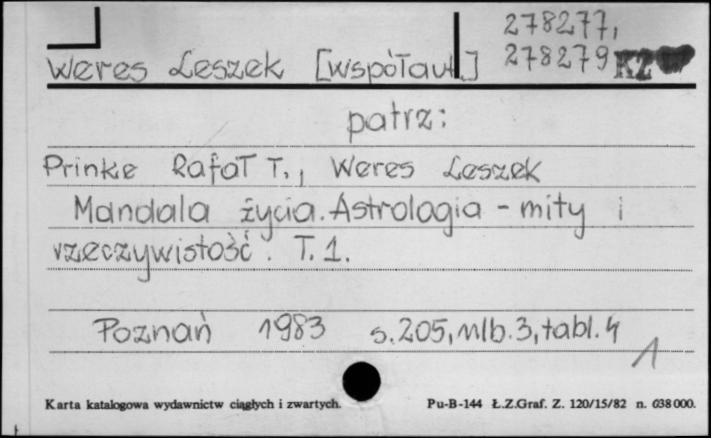 278277,
Weres Leszek [współaut.] 278279 KZ
patrz:
Prinke Rafał T., Weres Leszek
Mandala życia. Astrologia - mity i
rzeczywistość. T. 1.
Poznań 1983 s. 205, nlb. 3, tabl. 4
1
Karta katalogowa wydawnictw ciągłych i zwartych. Pu-B-144 Ł.Z.Graf. Z. 120/15/82 n. 038000.